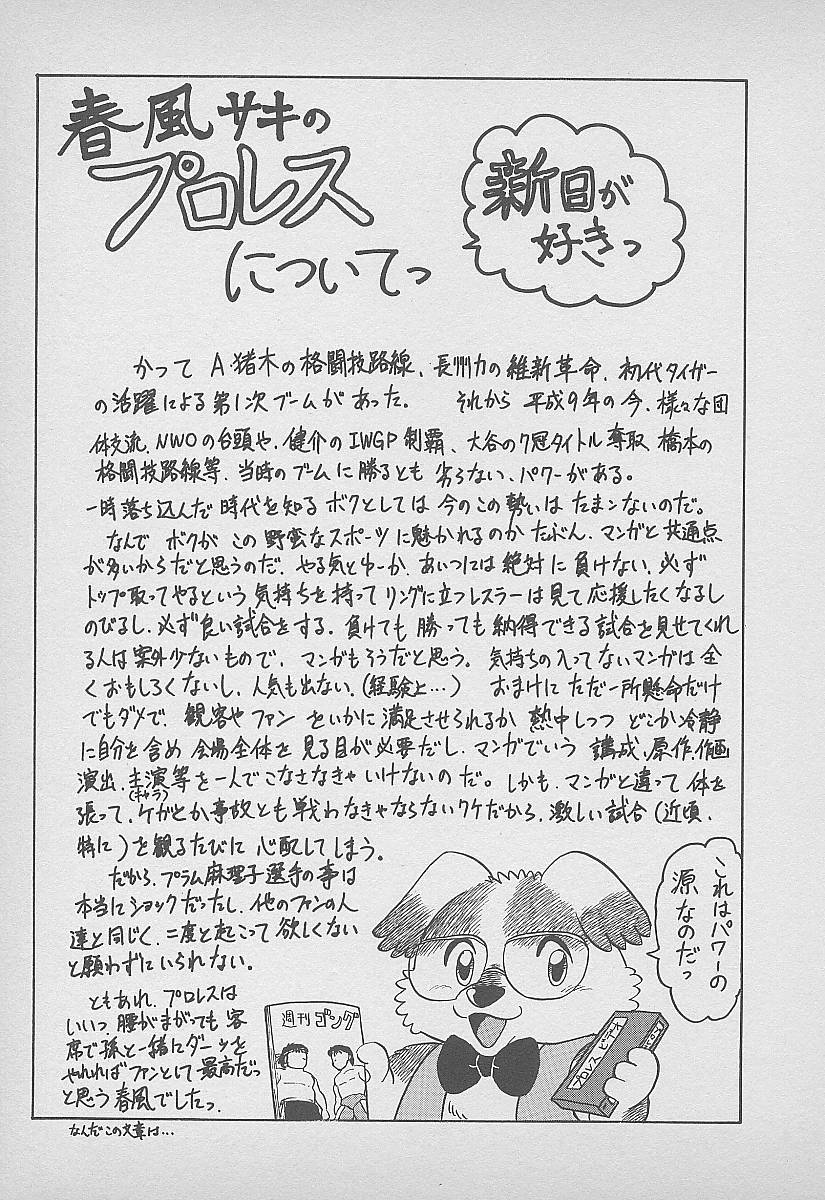 春風サキの
プロレス
についてっ
新日が
好きっ
かって A・猪木の格闘技路線、長州力の維新革命、初代タイガー
の活躍による第1次ブームがあった。 それから 平成9年の今、様々な団
体交流、NWOの台頭や、健介のIWGP制覇、大谷の7冠タイトル奪取 橋本の
格闘技路線等、当時のブームに勝るとも劣らない、パワーがある。
一時落ち込んだ時代を知るボクとしては今のこの勢いはたまンないのだ。
なんで ボクが この野蛮なスポーツに魅かれるのか たぶん、マンガと共通点
が多いからだと思うのだ、やる気とゆーか、あいつには絶対に負けない、必ず
トップ取ってやるという 気持ちを持って リングに立つレスラーは見て応援したくなるし
のびるし、必ず良い試合をする。負けても勝っても納得できる試合を見せてくれ
る人は案外少ないもので、マンガもそうだと思う。気持ちの入ってないマンガは全
くおもしろくないし、人気も出ない、(経験上…) おまけに ただ一所懸命だけ
でもダメで、観客や ファン をいかに満足させられるか 熱中しつつ どこか冷静
に自分を含め 会場全体を見る目が必要だし、マンガでいう 講成、原作、作画
演出、主演等を一人でこなさなきゃいけないのだ。しかも、マンガと違って 体を
(キャラ)
張って、ケガとか事故とも戦わなきゃならないワケだから、激しい試合(近頃、
特に)を観るたびに 心配してしまう。
だから、プラム麻理子選手の事は
本当にショックだったし、他のファンの人
達と同じく、二度と起こって欲しくない
と願わずにいられない。
ともあれ、プロレスは
いいっ、腰がまがっても 客
席で孫と一緒にダーッを
やれればファンとして最高だっ
と思う春風でしたっ
これはパワーの
源なのだっ
週刊ゴング
プロレス ビデオ
なんだこの文章は…